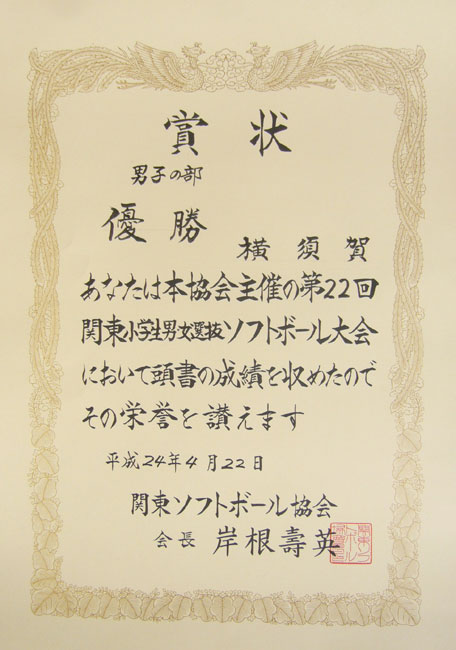 賞状
男子の部
優勝
横須賀
あなたは本協会主催の第22回
関東小学生男女選抜ソフトボール大会
において頭書の成績を収めたので
その栄誉を讃えます
平成24年4月22日
関東ソフトボール協会
会長 岸根壽英